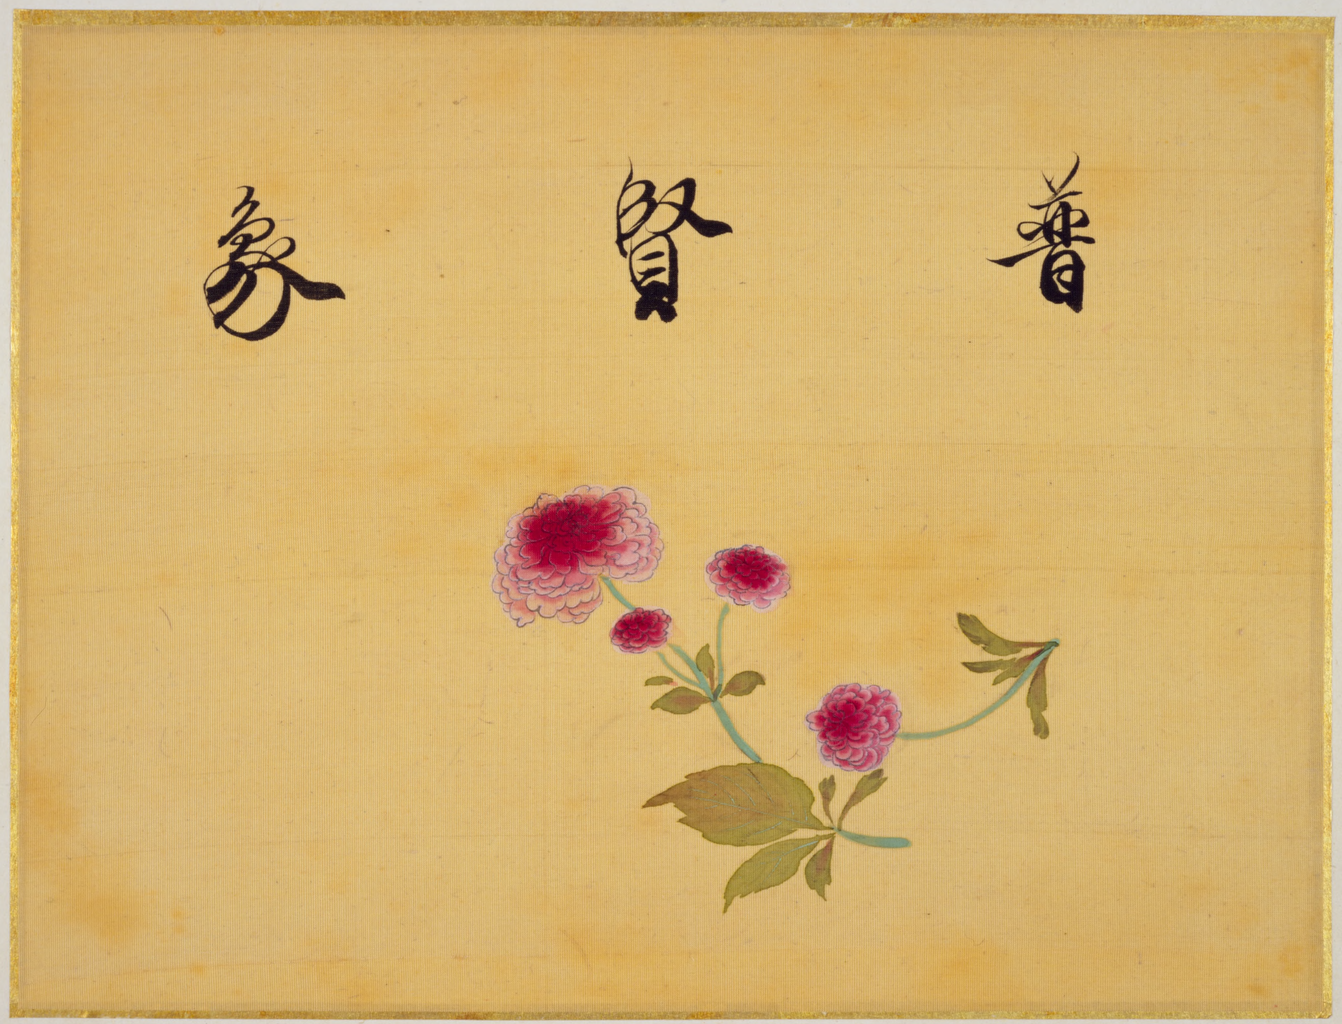 普賢象